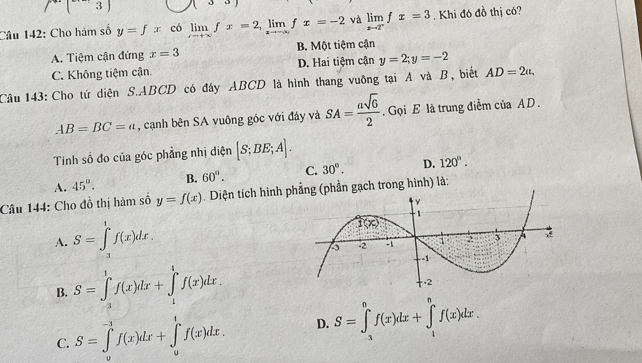 3) 3 3)
Câu 142: Cho hàm số y = f x có lim x→+∞ f x = 2, lim x→−∞ f x = −2 và lim f x = 3. Khi đó đồ thị có?
A. Tiệm cận đứng x = 3 B. Một tiệm cận
C. Không tiệm cận. D. Hai tiệm cận y = 2; y = −2
Câu 143: Cho tứ diện S.ABCD có đáy ABCD là hình thang vuông tại A và B, biết AD = 2a,
AB = BC = a, cạnh bên SA vuông góc với đáy và SA = a√6/2. Gọi E là trung điểm của AD.
Tính số đo của góc phẳng nhị diện [S;BE;A].
A. 45⁰. B. 60⁰. C. 30⁰. D. 120⁰.
Câu 144: Cho đồ thị hàm số y = f(x). Diện tích hình phẳng (phần gạch trong hình) là:
A. S = ∫ f(x)dx.
B. S = ∫ f(x)dx + ∫ f(x)dx.
C. S = ∫ f(x)dx + ∫ f(x)dx.
D. S = ∫ f(x)dx + ∫ f(x)dx.
y
1
f(x)
-3 -2 -1 1 2 3 4 x
-1
-2